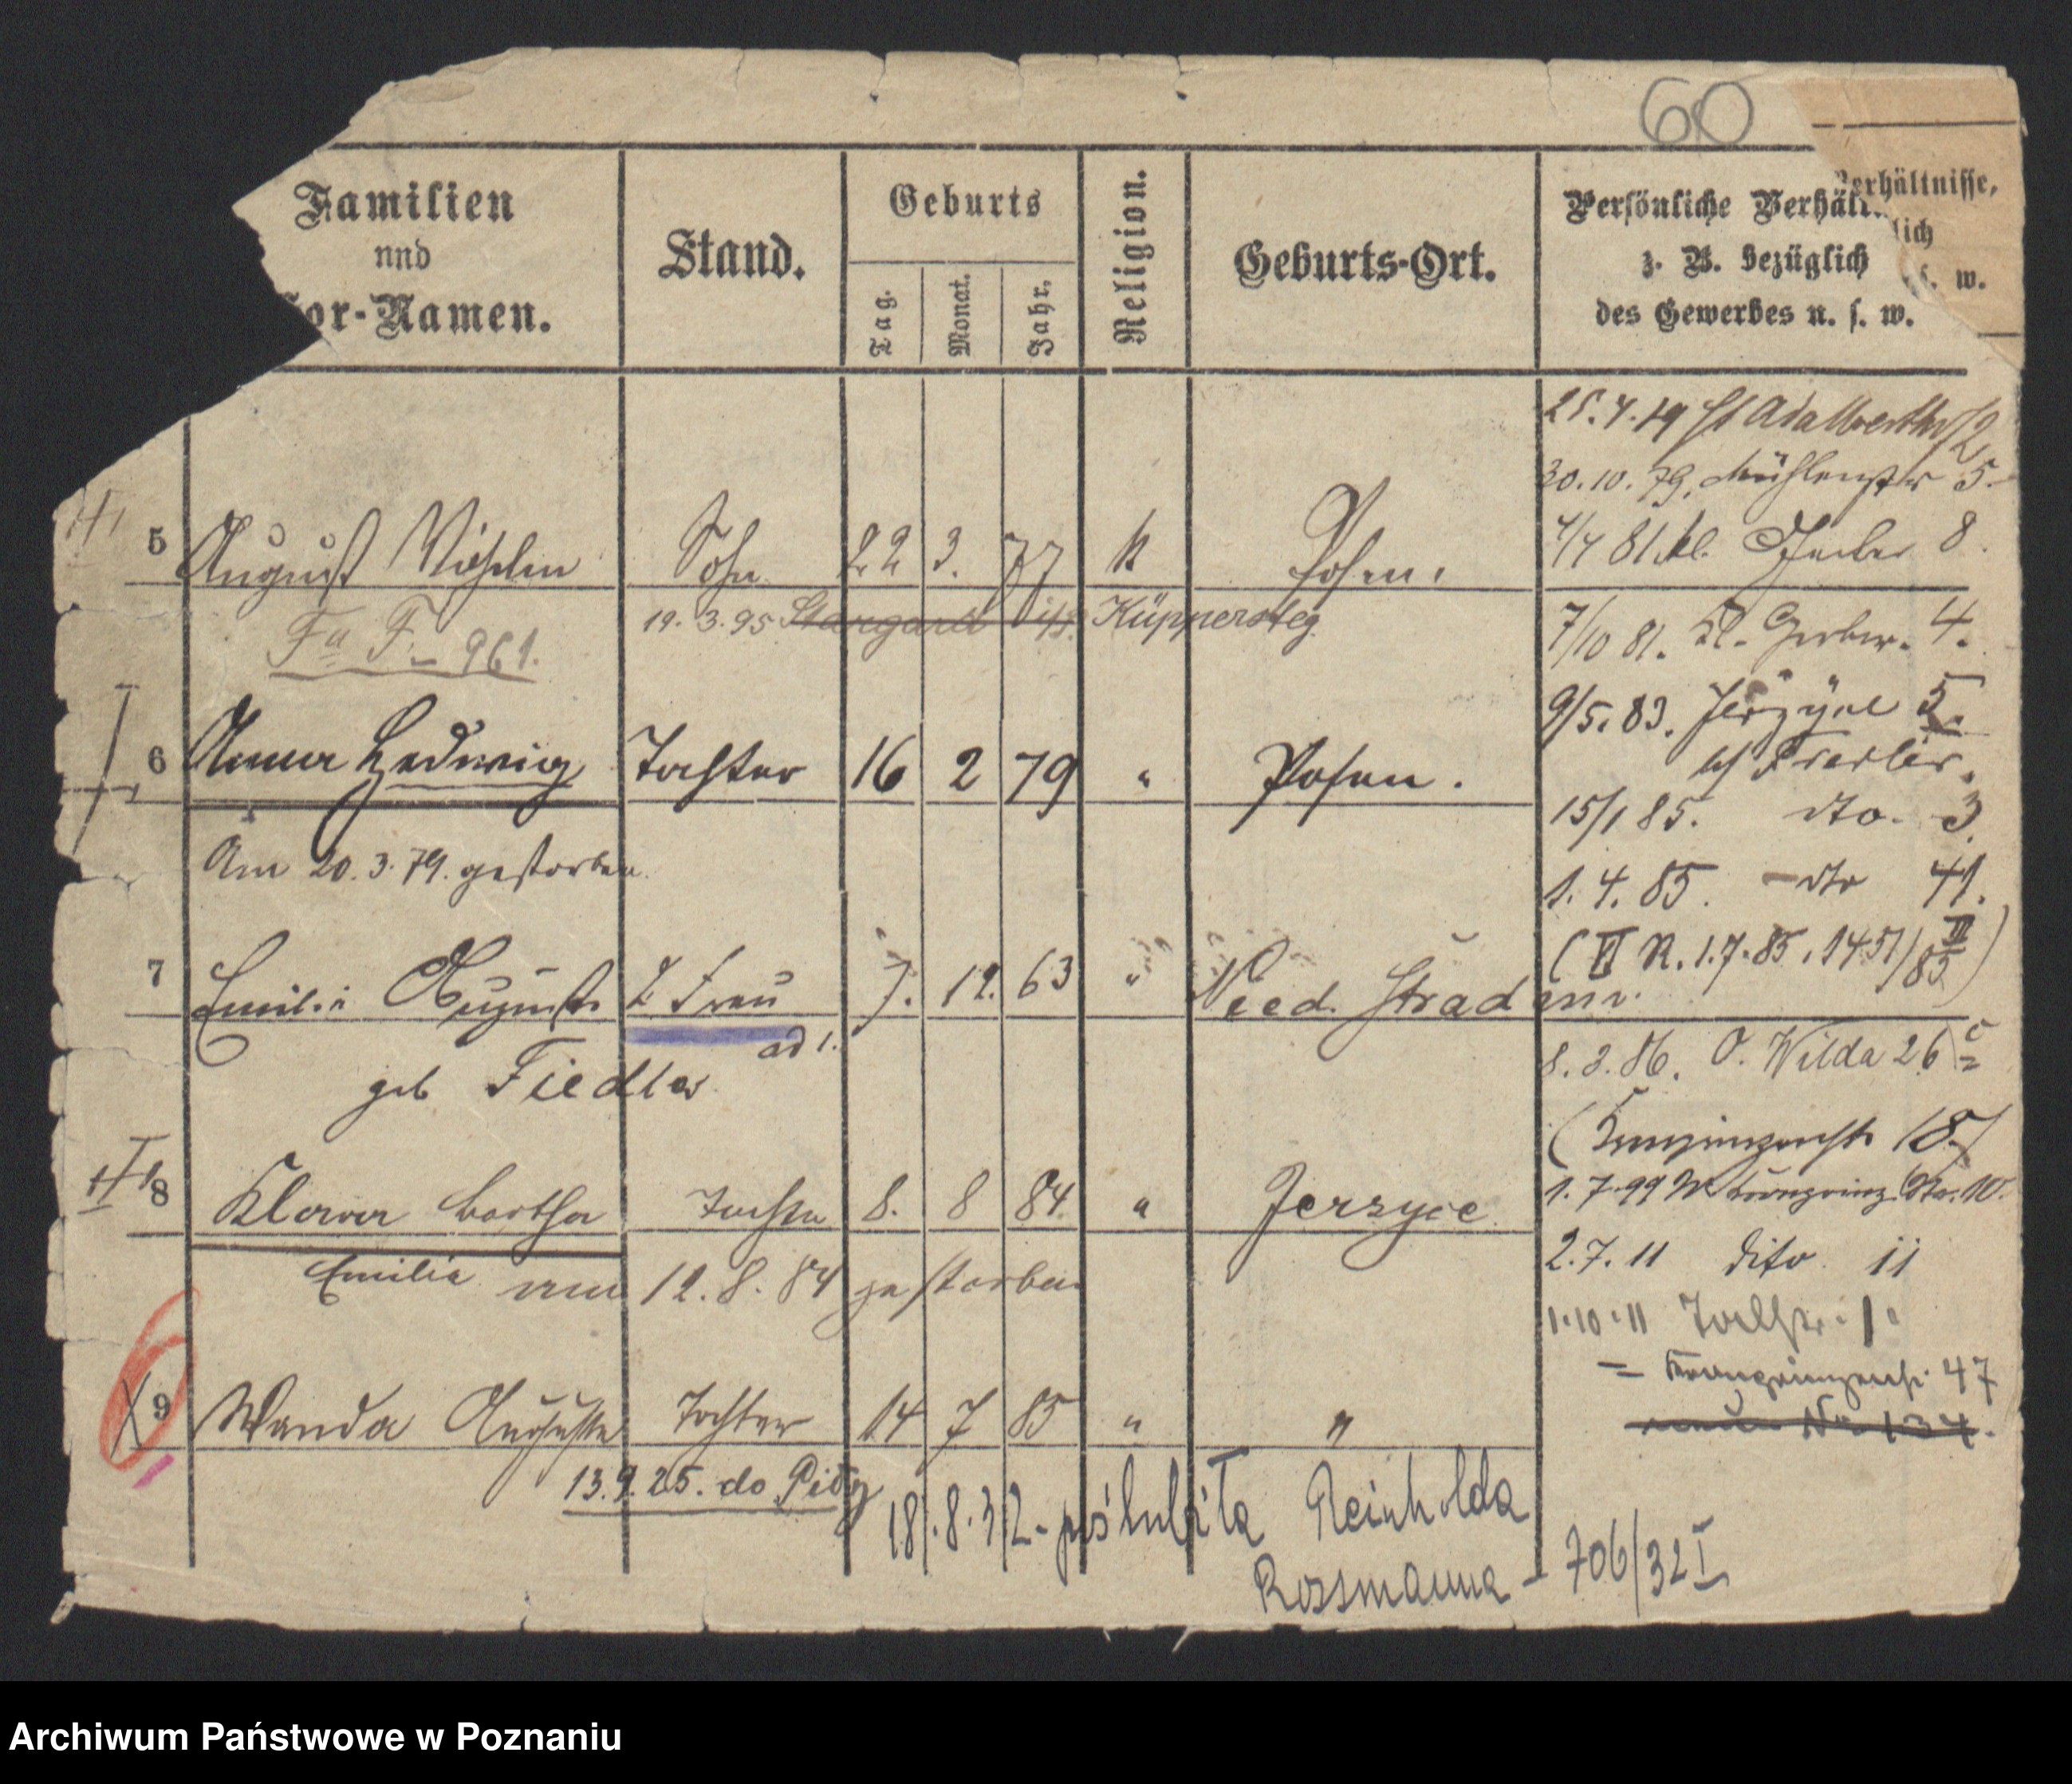 60
Familien
und
or-Namen.
Stand.
Geburts
Tag.
Monat.
Jahr.
Religion.
Geburts-Ort.
Persönliche Verhält
z. B. bezüglich
des Gewerbes u. s. w.
erhältnisse,
lich
s. w.
25.4.79 St Adalbertstr 2
30.10.79. Mühlenstr 5.
5 August Wilhelm Sohn 22 3. 77 k Posen.
4/4 81. kl. Gerber 8.
Fa F. 961.
19.3.95 Stargard Küppersteg
7/10 81. Kl. Gerber. 4.
9/5.83. Jerzyce 5.
b/ Fiedler.
6 Anna Hedwig Tochter 16 2 79 " Posen.
15/1 85. dto. 3.
Am 20.3.79. gestorben.
1.4.85. dto 41.
(VI R. 1.7.85. 1451/85 III)
7 Emilie Auguste 2. Frau 7. 12. 63 " Nied. Stradam.
ad 1.
geb Fiedler
8.3.86. O. Wilda 26 c
(Kronprinzenstr 18.)
8 Klara Bertha Tochter 8. 8 84 " Jerzyce.
1.7.99 W Kronprinz. Str. 10.
Emilie am 12.8.84 gestorben
2.7.11 dito 11
1.10.11
= Kronprinzenstr 47
No 134.
9 Wanda Auguste Tochter 14 7 85 " "
13.9.25. do
18.8.32. poślubiła Reinholda
Rossmanna - 706/32 I
Archiwum Państwowe w Poznaniu